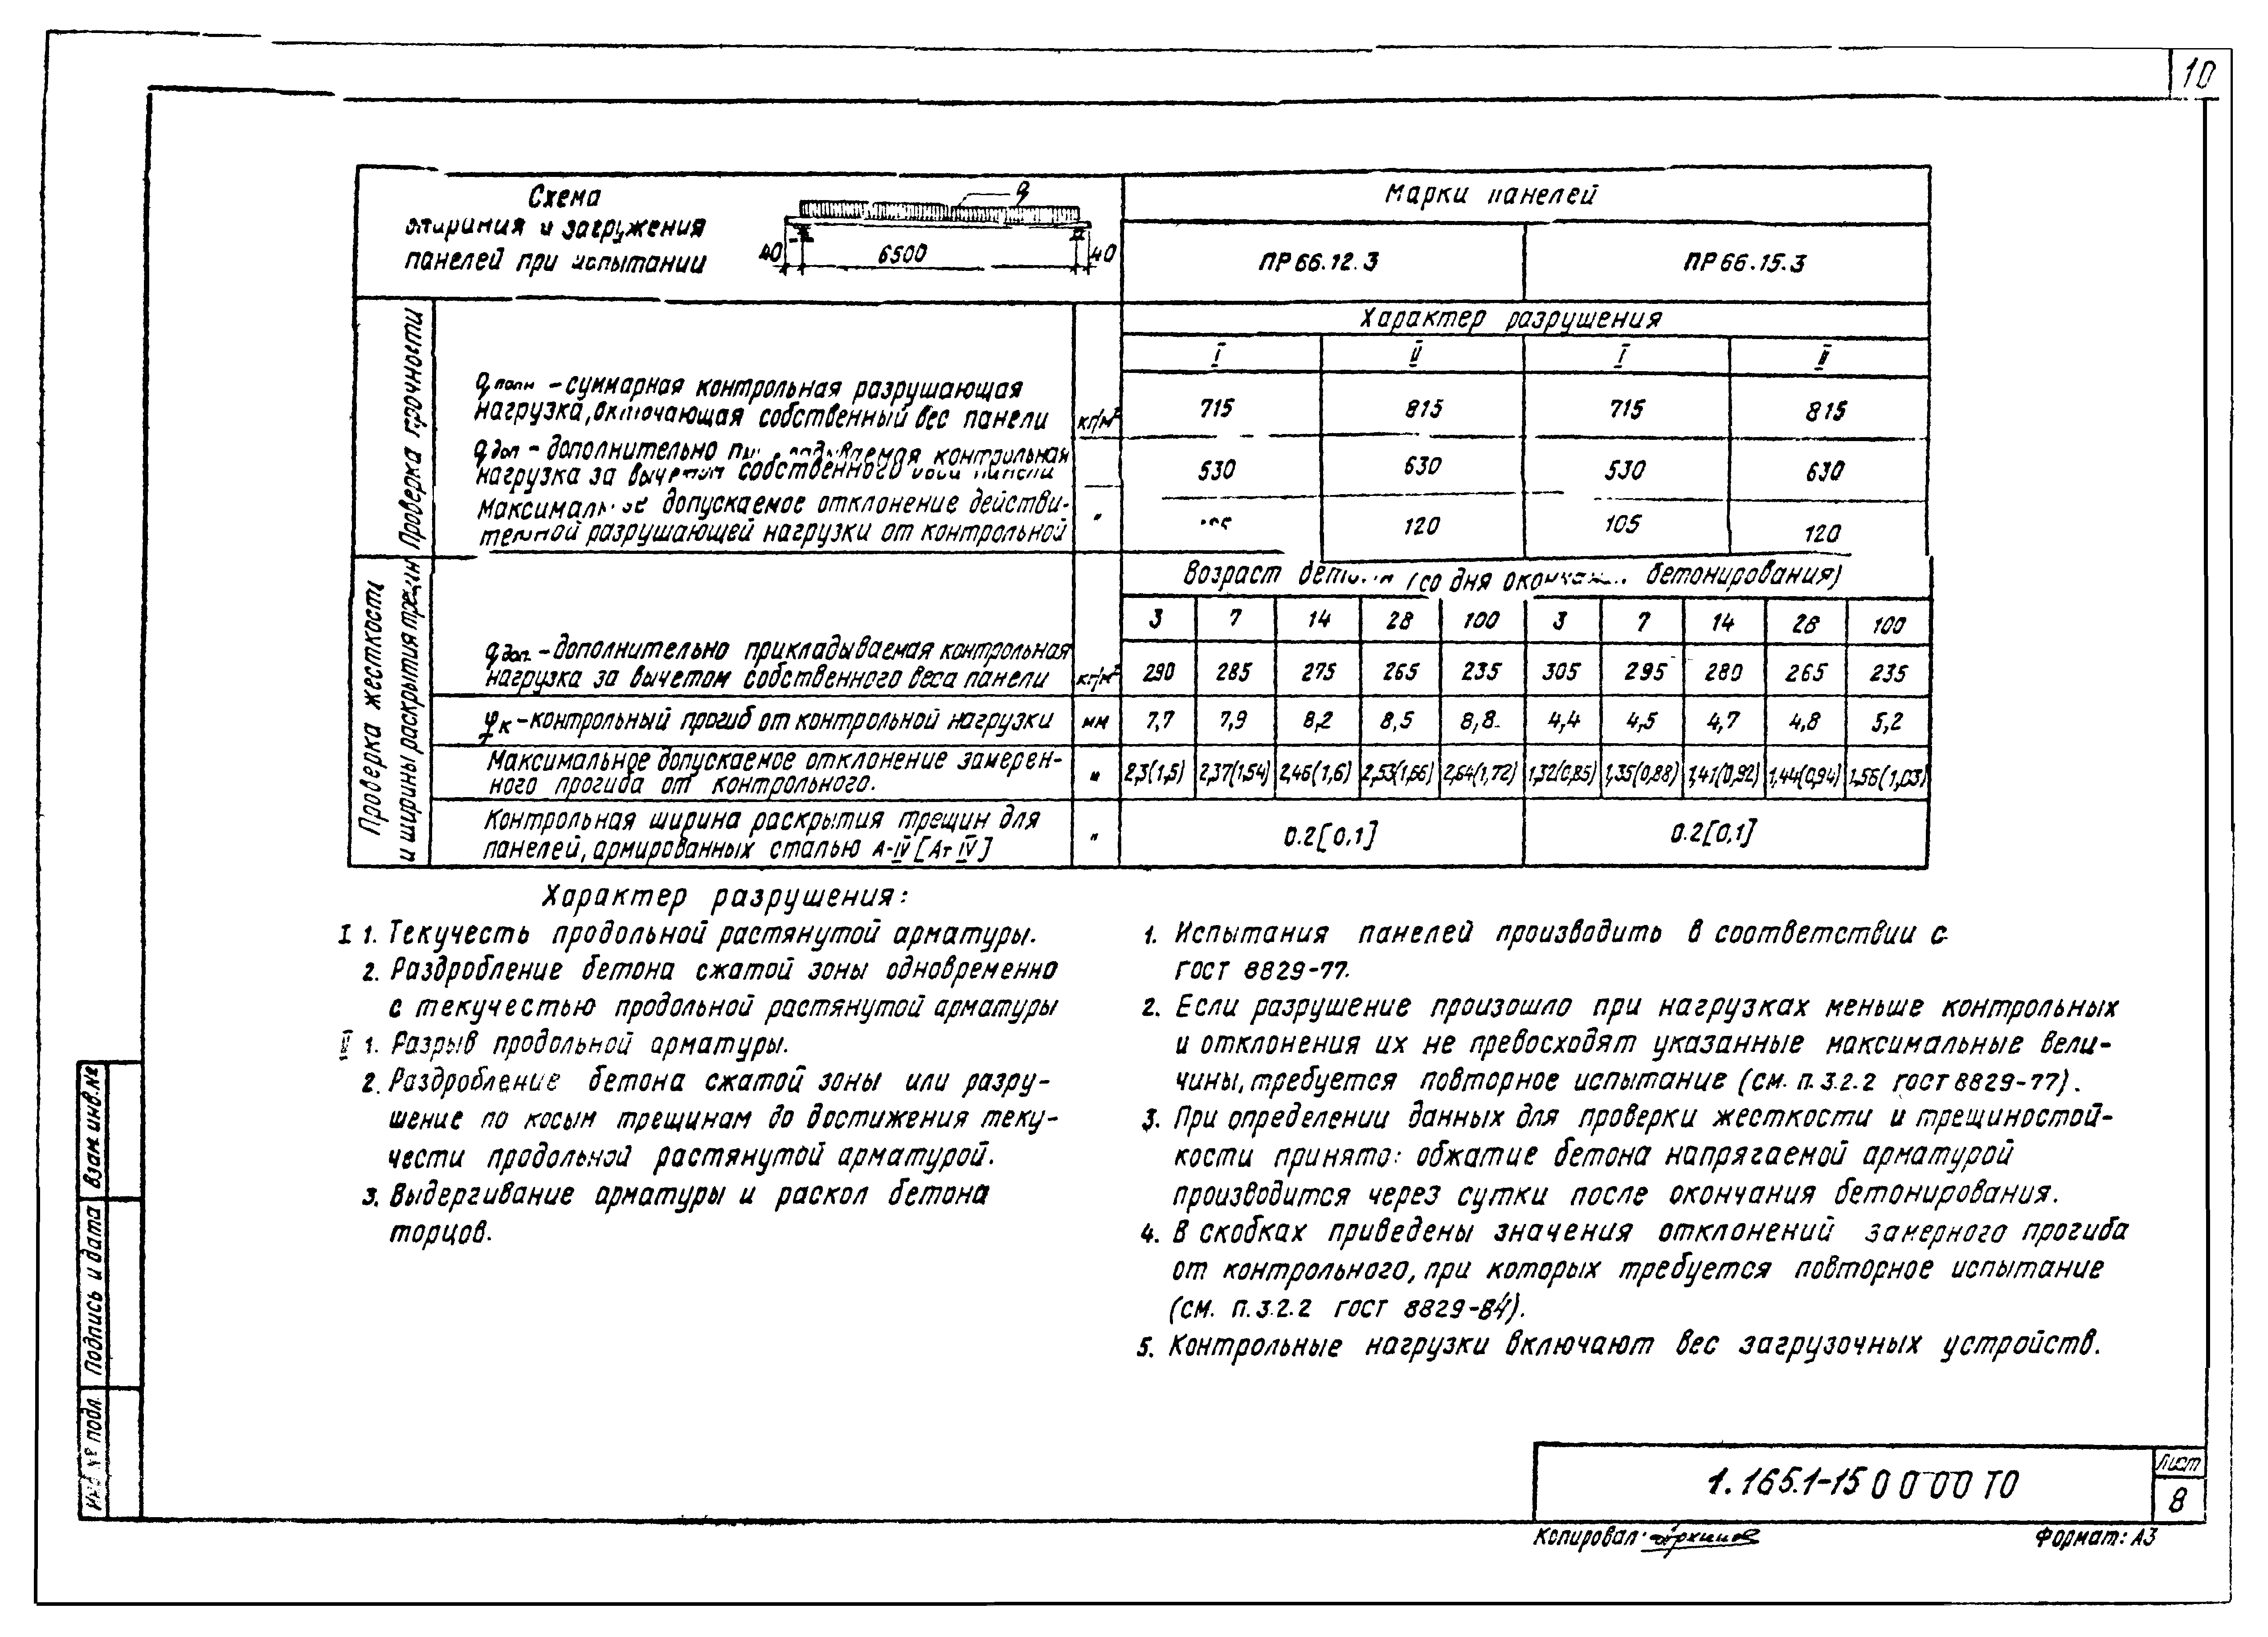 10
Схема
опирания и загружения
панелей при испытании
q
40 6500 40
Марки панелей
ПР66.12.3 ПР66.15.3
Проверка прочности
Характер разрушения
I II I II
qполн – суммарная контрольная разрушающая
нагрузка, включающая собственный вес панели кг/м² 715 815 715 815
qдоп – дополнительно контрольная
нагрузка за вычетом собственного веса панели 530 630 530 630
Максимальное допускаемое отклонение действи-
тельной разрушающей нагрузки от контрольной " 120 105 120
Проверка жесткости
и ширины раскрытия трещин
Возраст бетона (со дня окончания бетонирования)
3 7 14 28 100 3 7 14 28 100
qдоп. – дополнительно прикладываемая контрольная
нагрузка за вычетом собственного веса панели кг/м² 290 285 275 265 235 305 295 280 265 235
fк – контрольный прогиб от контрольной нагрузки мм 7,7 7,9 8,2 8,5 8,8 4,4 4,5 4,7 4,8 5,2
Максимальное допускаемое отклонение замерен-
ного прогиба от контрольного. " 2,3(1,5) 2,37(1,54) 2,46(1,6) 2,53(1,66) 2,64(1,72) 1,32(0,85) 1,35(0,88) 1,41(0,92) 1,44(0,94) 1,56(1,03)
Контрольная ширина раскрытия трещин для
панелей, армированных сталью А-IV [Ат IV] " 0.2[0,1] 0.2[0,1]
Характер разрушения:
I 1. Текучесть продольной растянутой арматуры.
2. Раздробление бетона сжатой зоны одновременно
с текучестью продольной растянутой арматуры
II 1. Разрыв продольной арматуры.
2. Раздробление бетона сжатой зоны или разру-
шение по косым трещинам до достижения теку-
чести продольной растянутой арматурой.
3. Выдергивание арматуры и раскол бетона
торцов.
1. Испытания панелей производить в соответствии с
ГОСТ 8829-77.
2. Если разрушение произошло при нагрузках меньше контрольных
и отклонения их не превосходят указанные максимальные вели-
чины, требуется повторное испытание (см. п. 3.2.2 ГОСТ 8829-77).
3. При определении данных для проверки жесткости и трещиностой-
кости принято: обжатие бетона напрягаемой арматурой
производится через сутки после окончания бетонирования.
4. В скобках приведены значения отклонений замерного прогиба
от контрольного, при которых требуется повторное испытание
(см. п. 3.2.2 ГОСТ 8829-84).
5. Контрольные нагрузки включают вес загрузочных устройств.
Взам. инв. №
Подпись и дата
Инв. № подл.
1.165.1-15 0 0 00 ТО
Лист
8
Копировал:
Формат: А3